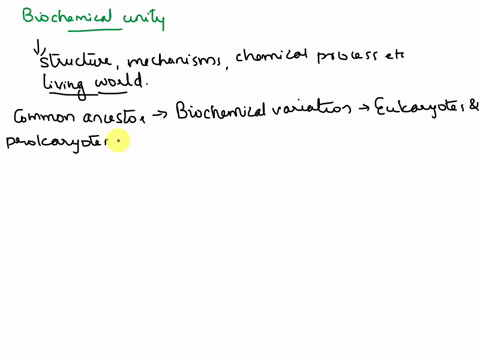 Biochemical unity
structure, mechanisms, chemical process etc
living world.
Common ancestor → Biochemical variation → Eukaryotes &
prokaryotes.